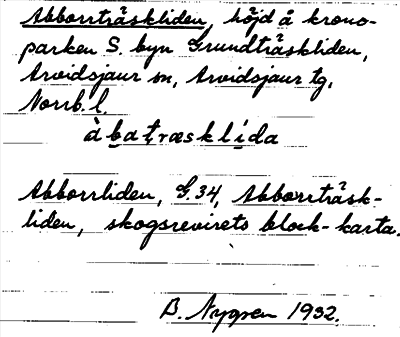 Abborrträskliden, höjd å krono-
parken S. byn Grundträskliden,
Arvidsjaur sn, Arvidsjaur tg,
Norrb. l.
àbatræsklída
Abborrliden, G.34, Abborrträsk-
liden, skogsrevirets block-karta.
B. Nygren 1932.